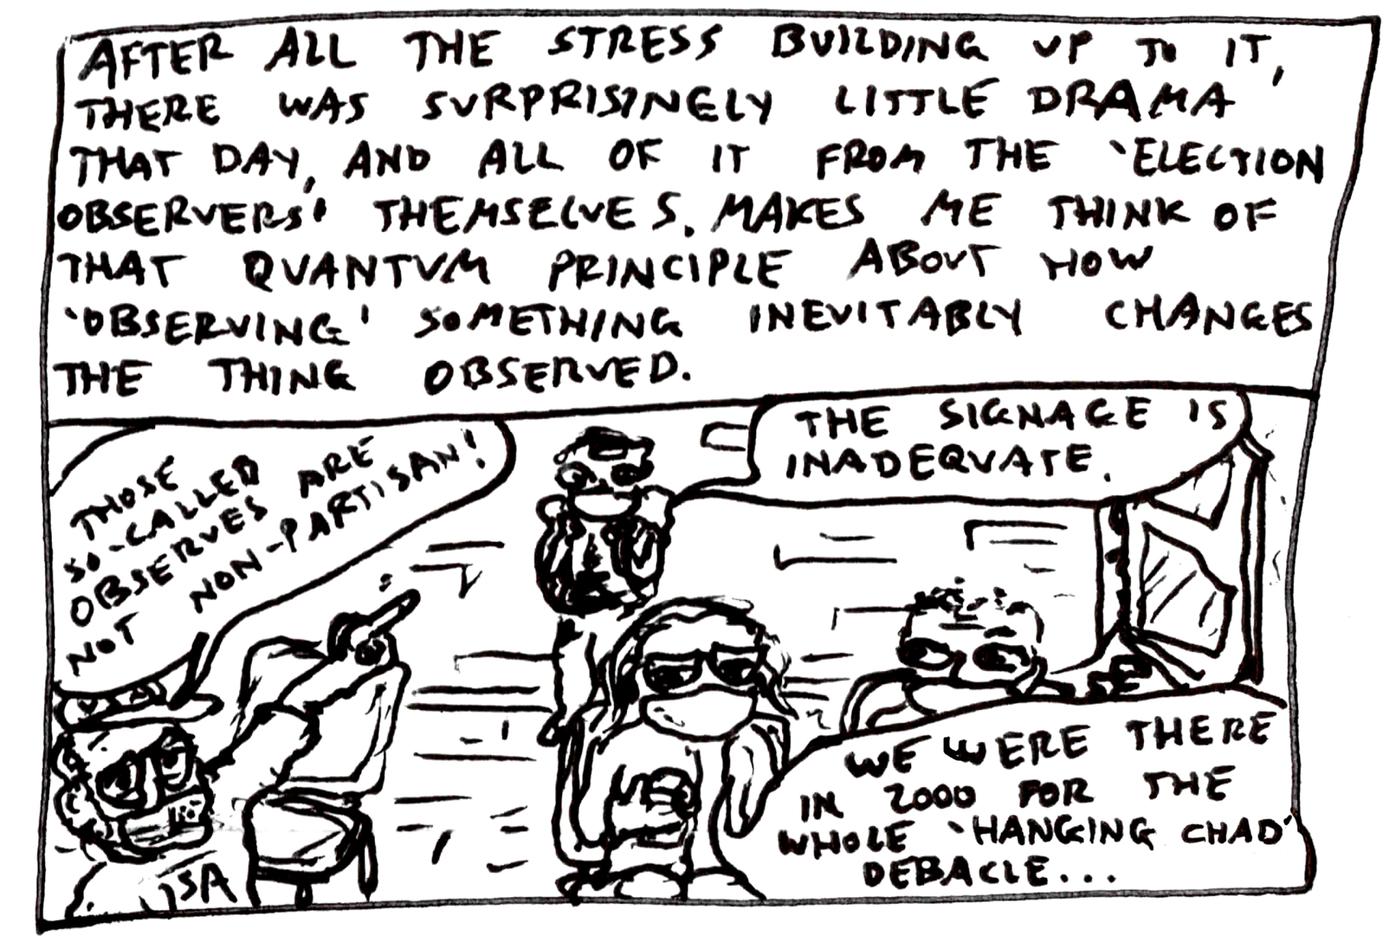 AFTER ALL THE STRESS BUILDING UP TO IT,
THERE WAS SURPRISINGLY LITTLE DRAMA
THAT DAY, AND ALL OF IT FROM THE 'ELECTION
OBSERVERS' THEMSELVES. MAKES ME THINK OF
THAT QUANTUM PRINCIPLE ABOUT HOW
'OBSERVING' SOMETHING INEVITABLY CHANGES
THE THING OBSERVED.
THOSE
SO-CALLED
OBSERVES ARE
NOT NON-PARTISAN!
THE SIGNAGE IS
INADEQUATE.
WE WERE THERE
IN 2000 FOR THE
WHOLE 'HANGING CHAD'
DEBACLE...